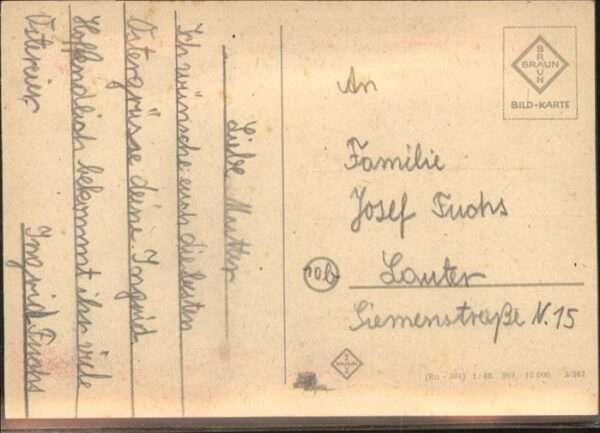 Liebe Mutter
Ich wünsche euch die besten
Ostergrüsse deine Ingrid.
Hoffendlich bekommt ihr viele
Ostereier
Ingrid Fuchs
BRAUN
BRAUN
BILD-KARTE
An
Familie
Josef Fuchs
10b
Lauter
Siemenstraße N. 15
BRAUN
BRAUN
1/48. 967. 10 000. 3/367